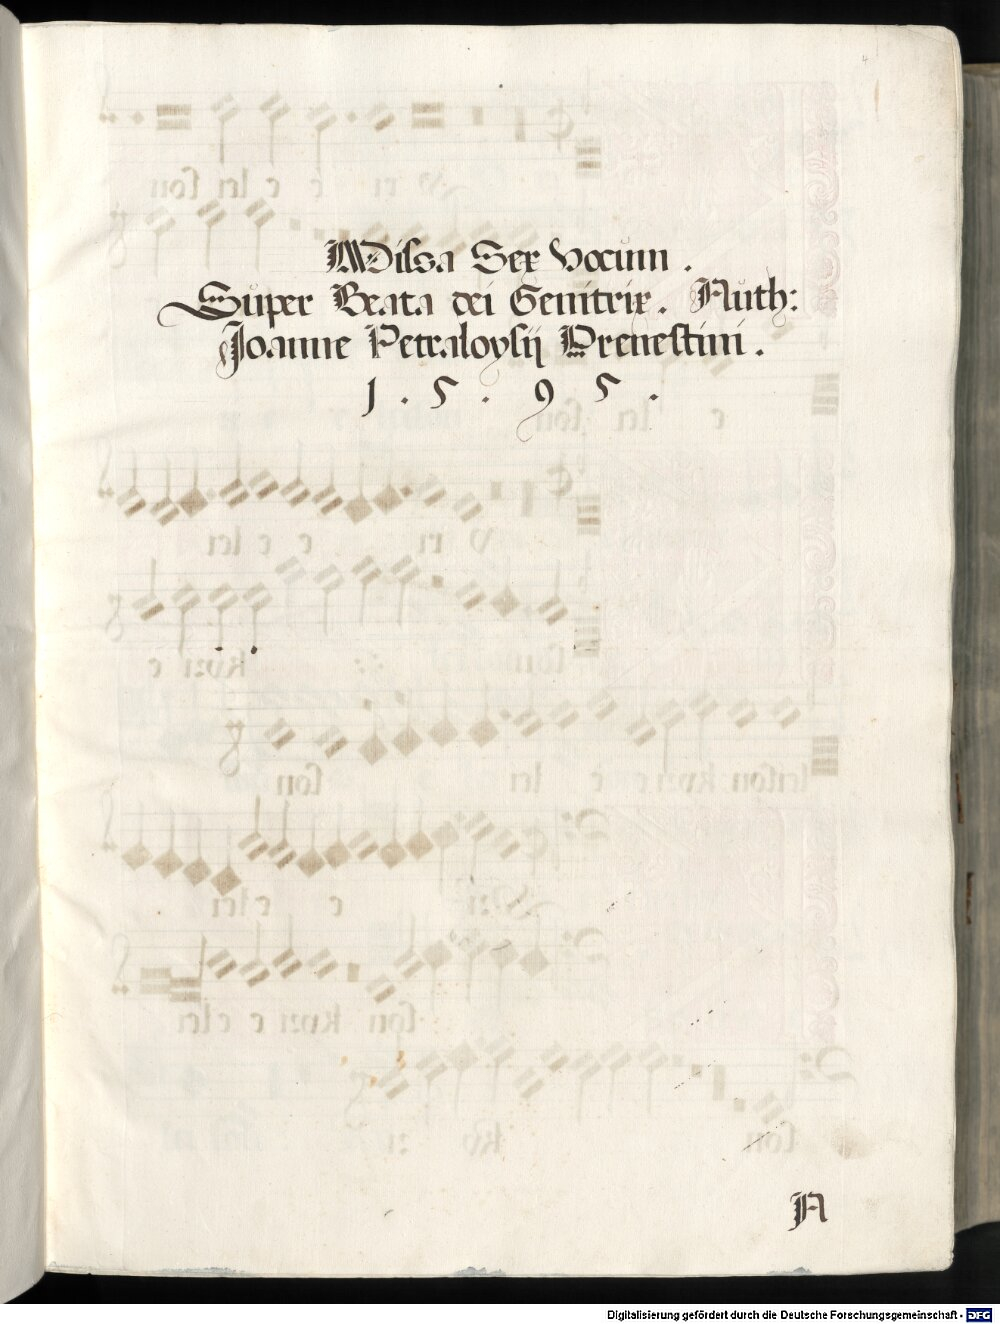 4
Missa Sex Vocum .
Super Beata dei Genitrix . Auth:
Joanne Petraloysij Prenestini .
1 . 5 . 9 5 .
A
Digitalisierung gefördert durch die Deutsche Forschungsgemeinschaft - DFG